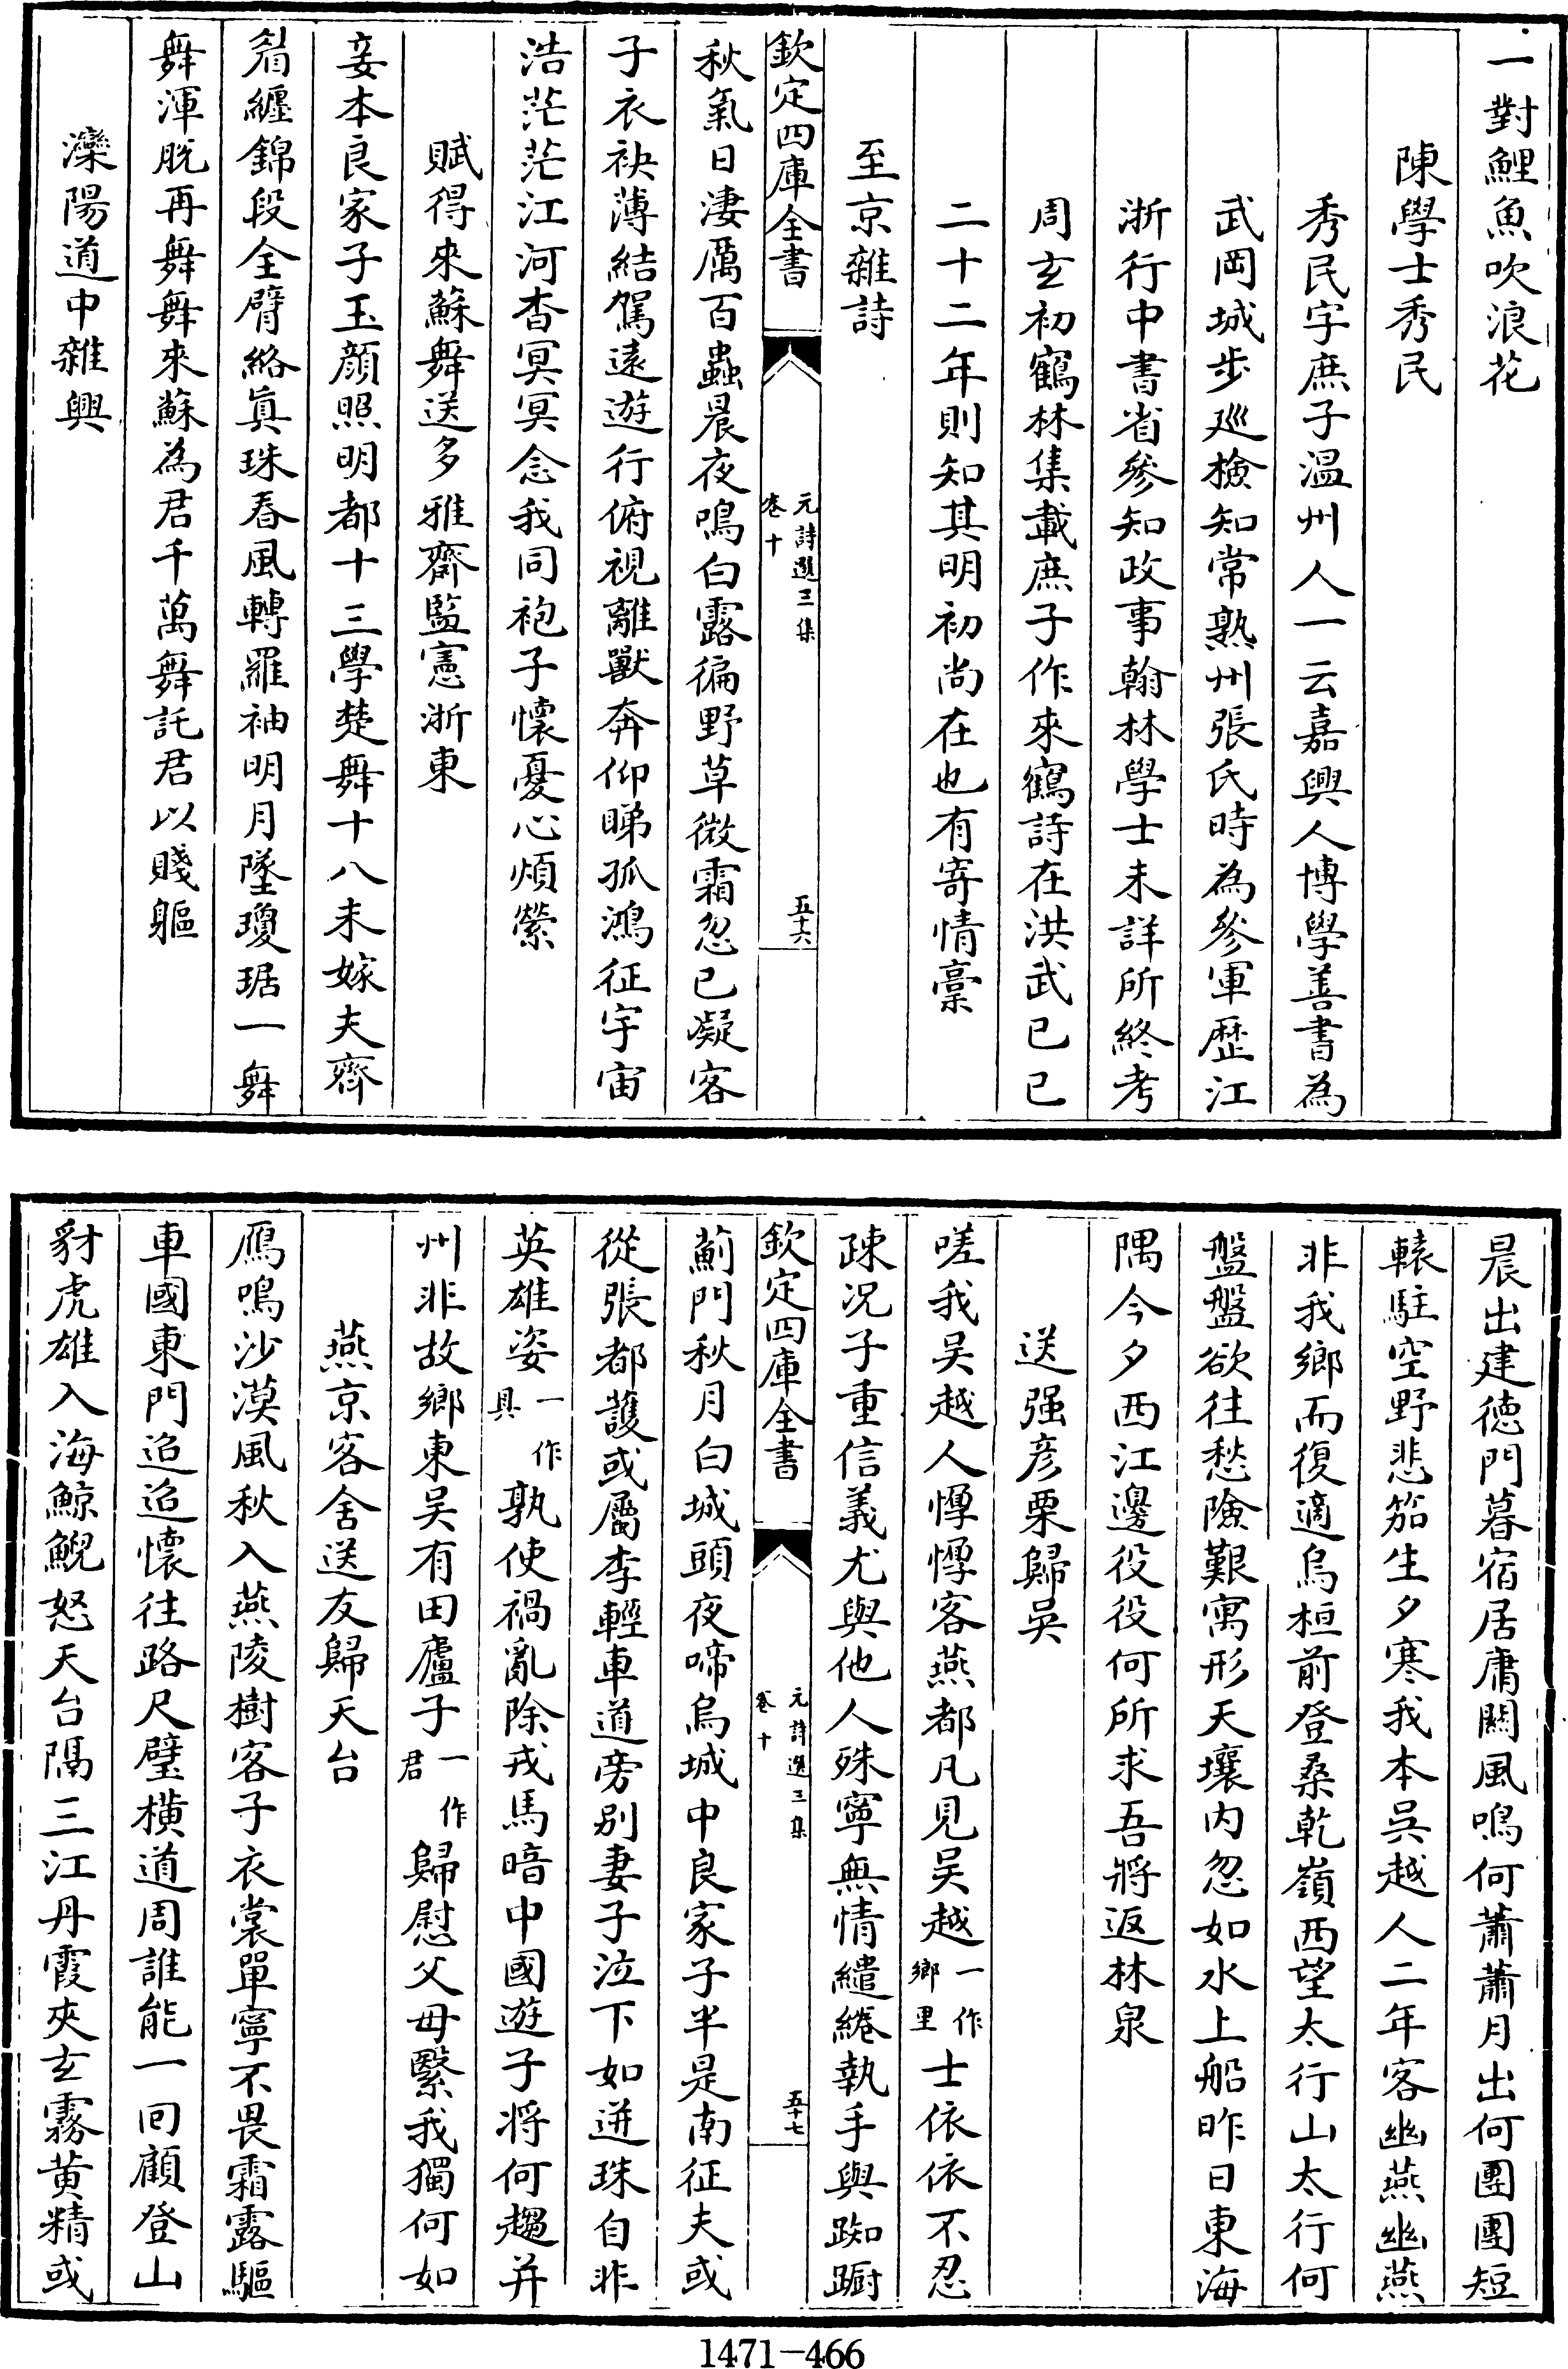 一對鯉魚吹浪花
陳學士秀民
秀民字庶子温州人一云嘉興人博學善書為
武岡城步巡檢知常熟州張氏時為參軍歷江
浙行中書省參知政事翰林學士未詳所終考
周玄初鶴林集載庶子作來鶴詩在洪武已巳
二十二年則知其明初尚在也有寄情槀
至京雜詩
欽定四庫全書
元詩選三集
卷十
五十六
秋氣日淒厲百蟲晨夜鳴白露徧野草微霜忽已凝客
子衣袂薄結駕遠遊行俯視離獸奔仰睇孤鴻征宇宙
浩茫茫江河杳冥冥念我同袍子懷憂心煩縈
賦得來蘇舞送多雅齋監憲浙東
妾本良家子玉顔照明都十三學楚舞十八未嫁夫齊
眉纏錦段全臂絡真珠春風轉羅袖明月墜瓊琚一舞
舞渾脱再舞舞來蘇為君千萬舞託君以賤軀
灤陽道中雜興
晨出建徳門暮宿居庸闗風鳴何蕭蕭月出何團團短
轅駐空野悲笳生夕寒我本吳越人二年客幽燕幽燕
非我鄉而復適烏桓前登桑乾嶺西望太行山太行何
盤盤欲往愁險艱寓形天壤内忽如水上船昨日東海
隅今夕西江邊役役何所求吾將返林泉
送强彦栗歸吴
嗟我吴越人惸惸客燕都凡見吴越一作鄉里士依依不忍
疎况子重信義尤與他人殊寧無情繾綣執手與踟蹰
欽定四庫全書
元詩選三集
卷十
五十七
薊門秋月白城頭夜啼烏城中良家子半是南征夫或
從張都護或屬李輕車道旁别妻子泣下如迸珠自非
英雄姿一作具孰使禍亂除戎馬暗中國遊子将何趨并
州非故鄉東吴有田廬子一作君歸慰父母繄我獨何如
燕京客舍送友歸天台
鴈鳴沙漠風秋入燕陵樹客子衣裳單寧不畏霜露驅
車國東門迢迢懷往路尺璧横道周誰能一囘顧登山
豺虎雄入海鯨鯢怒天台隔三江丹霞夾玄霧黄精或
1471-466